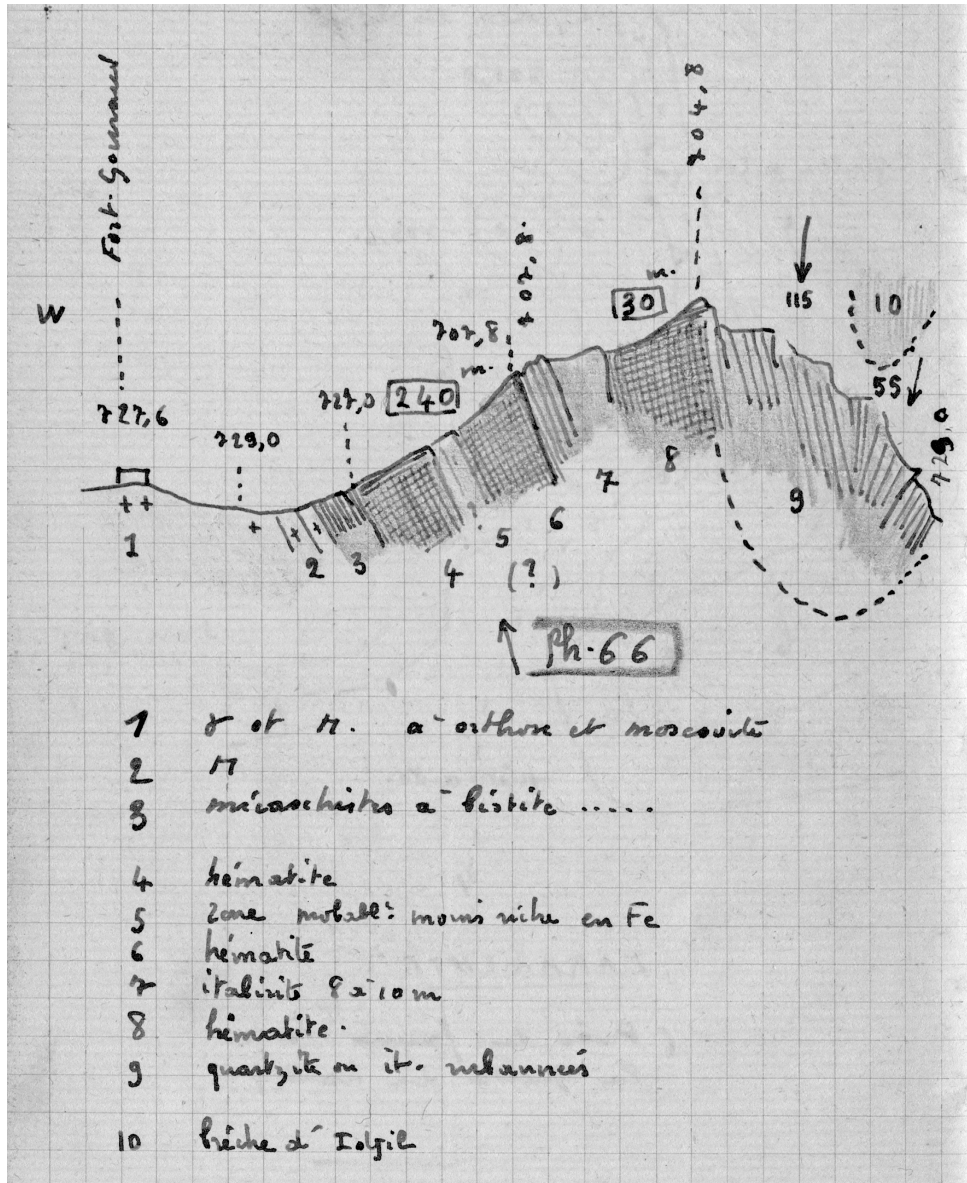 Fort-Gouraud
W
727,6
729,0
727,0
240
m.
707,8
707,8
30
m.
704,8
115
10
55
729,0
+ +
+
+ +
1
2
3
4
5
(?)
6
7
8
9
Ph-66
1 γ et M. à orthose et moscovite
2 M
3 micaschistes à biotite .....
4 hématite
5 zone probablt moins riche en Fe
6 hématite
7 itabirite 8 à 10 m
8 hématite.
9 quartzite ou it. rubannées
10 brèche d'Idjil